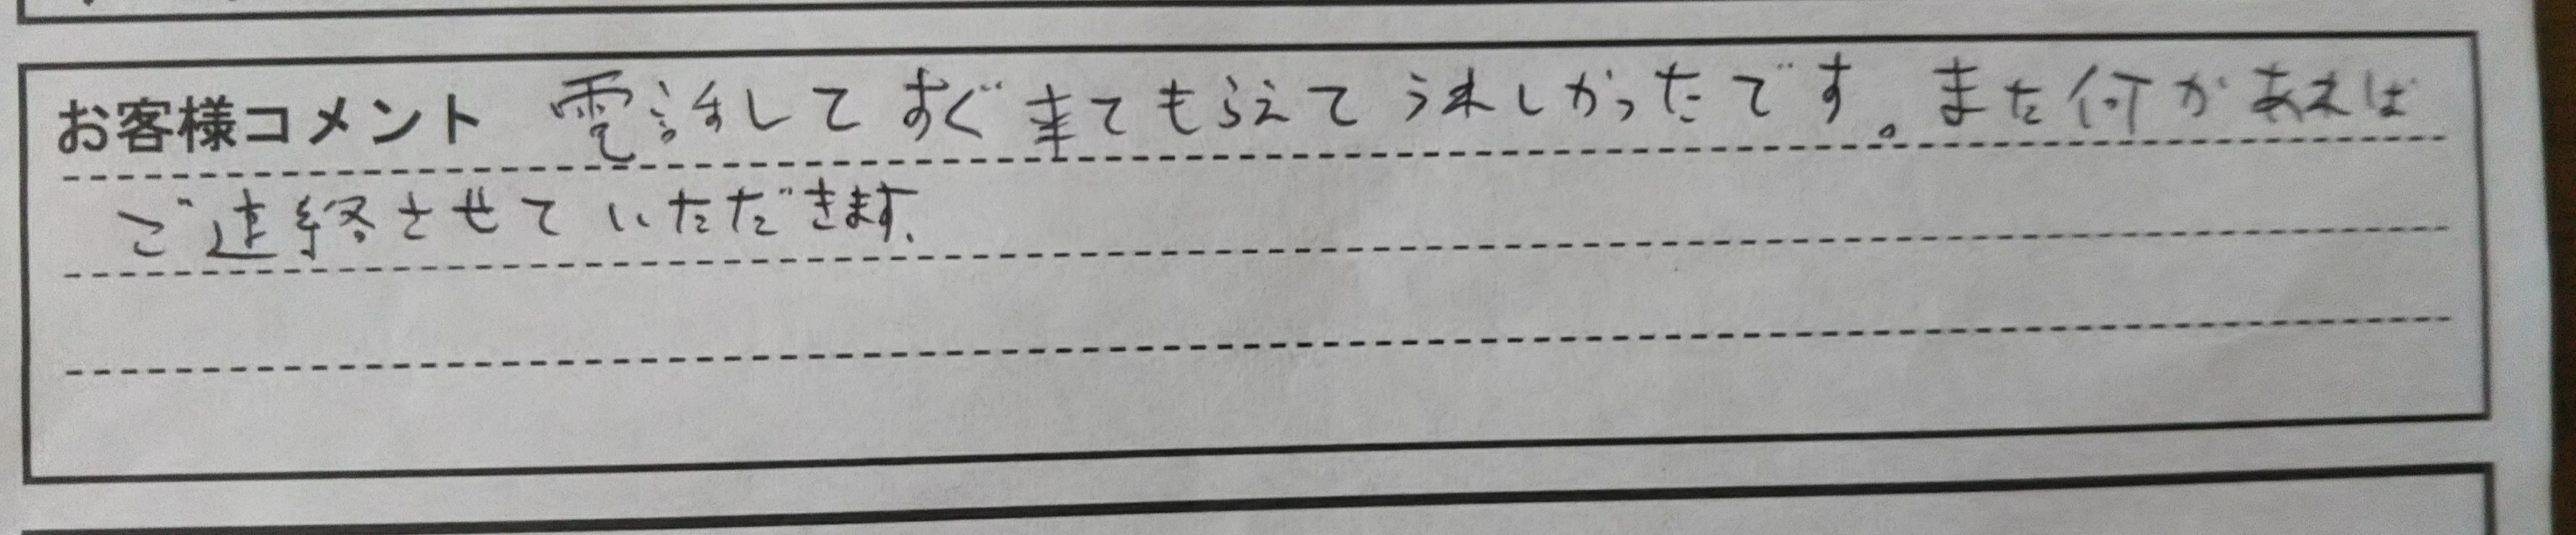 お客様コメント 電話してすぐ来てもらえてうれしかったです。また何かあれば
ご連絡させていただきます。